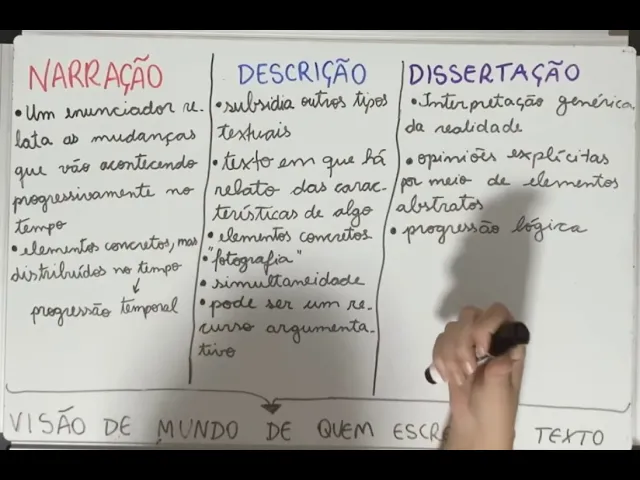 NARRAÇÃO
• Um enunciador re-
lata as mudanças
que vão acontecendo
progressivamente no
tempo
• elementos concretos, mas
distribuídos no tempo
↓
progressão temporal
DESCRIÇÃO
• subsidia outros tipos
textuais
• texto em que há
relato das carac-
terísticas de algo
• elementos concretos
• "fotografia"
• simultaneidade
• pode ser um re-
curso argumenta-
tivo
DISSERTAÇÃO
• Interpretação genérica
da realidade
• opiniões explícitas
por meio de elementos
abstratos
• progressão lógica
VISÃO DE MUNDO DE QUEM ESCRE TEXTO